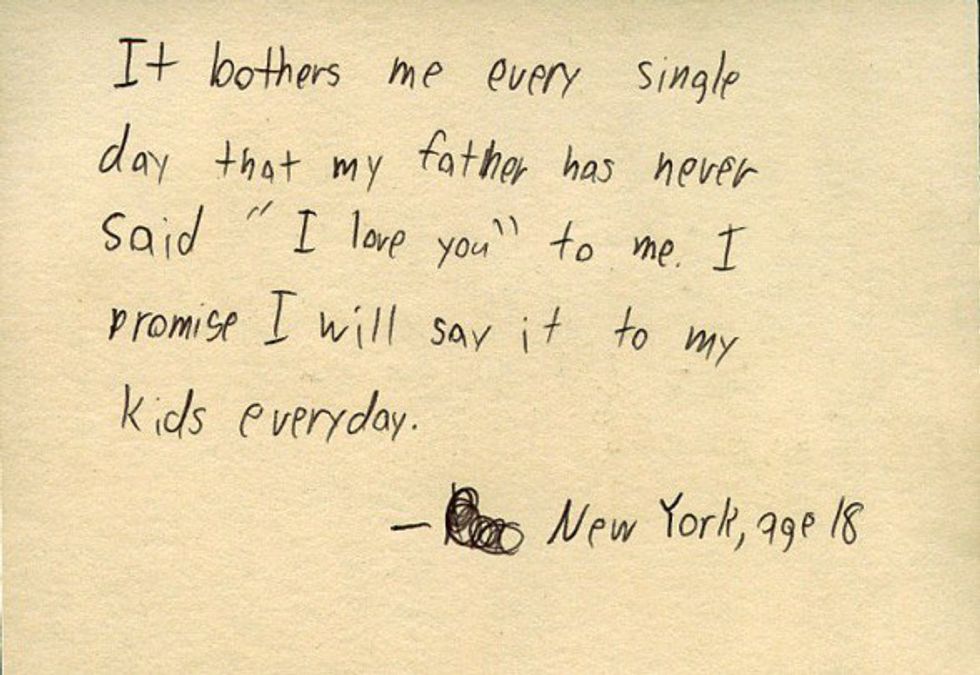 It bothers me every single
day that my father has never
said "I love you" to me. I
promise I will say it to my
kids everyday.
— New York, age 18